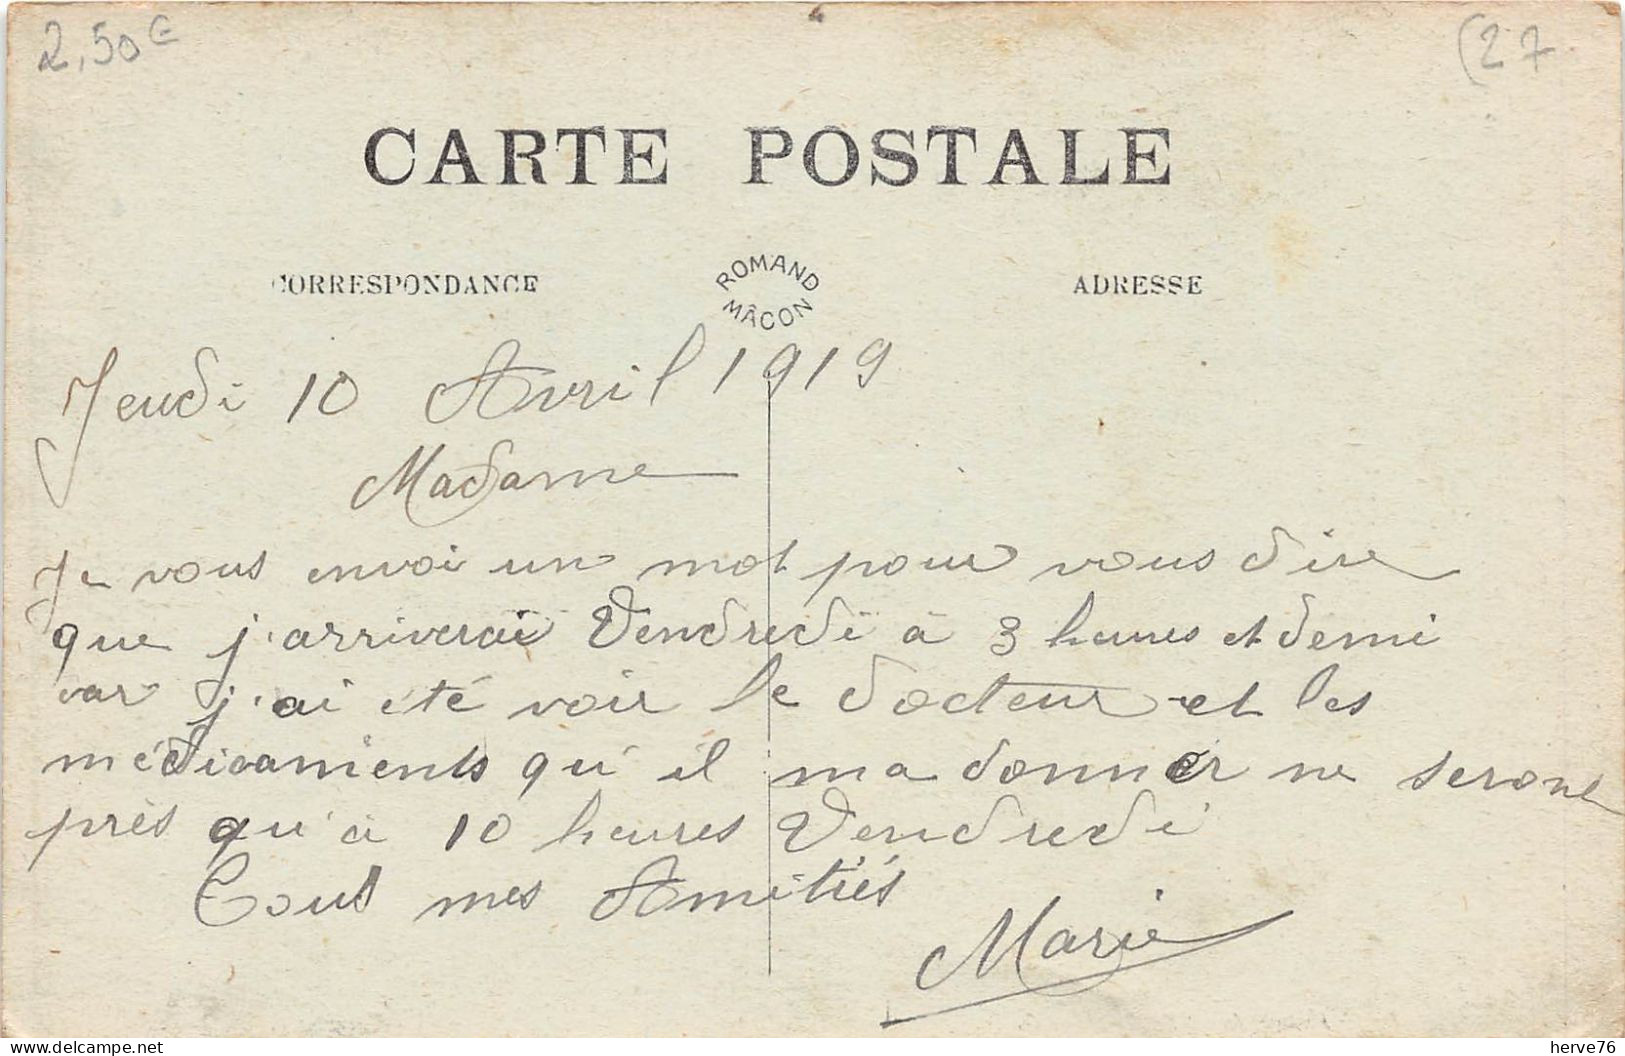 2,50€
(27
CARTE POSTALE
CORRESPONDANCE
ROMAND
MÂCON
ADRESSE
Jeudi 10 Avril 1919
Madame
Je vous envoi un mot pour vous dire
que j'arriverai Vendredi à 3 heures et demi
car j'ai été voir le docteur et les
médicaments qu'il ma donner ne serons
près qu'à 10 heures Vendredi
Tout mes Amitiés
Marie
delcampe.net
herve76